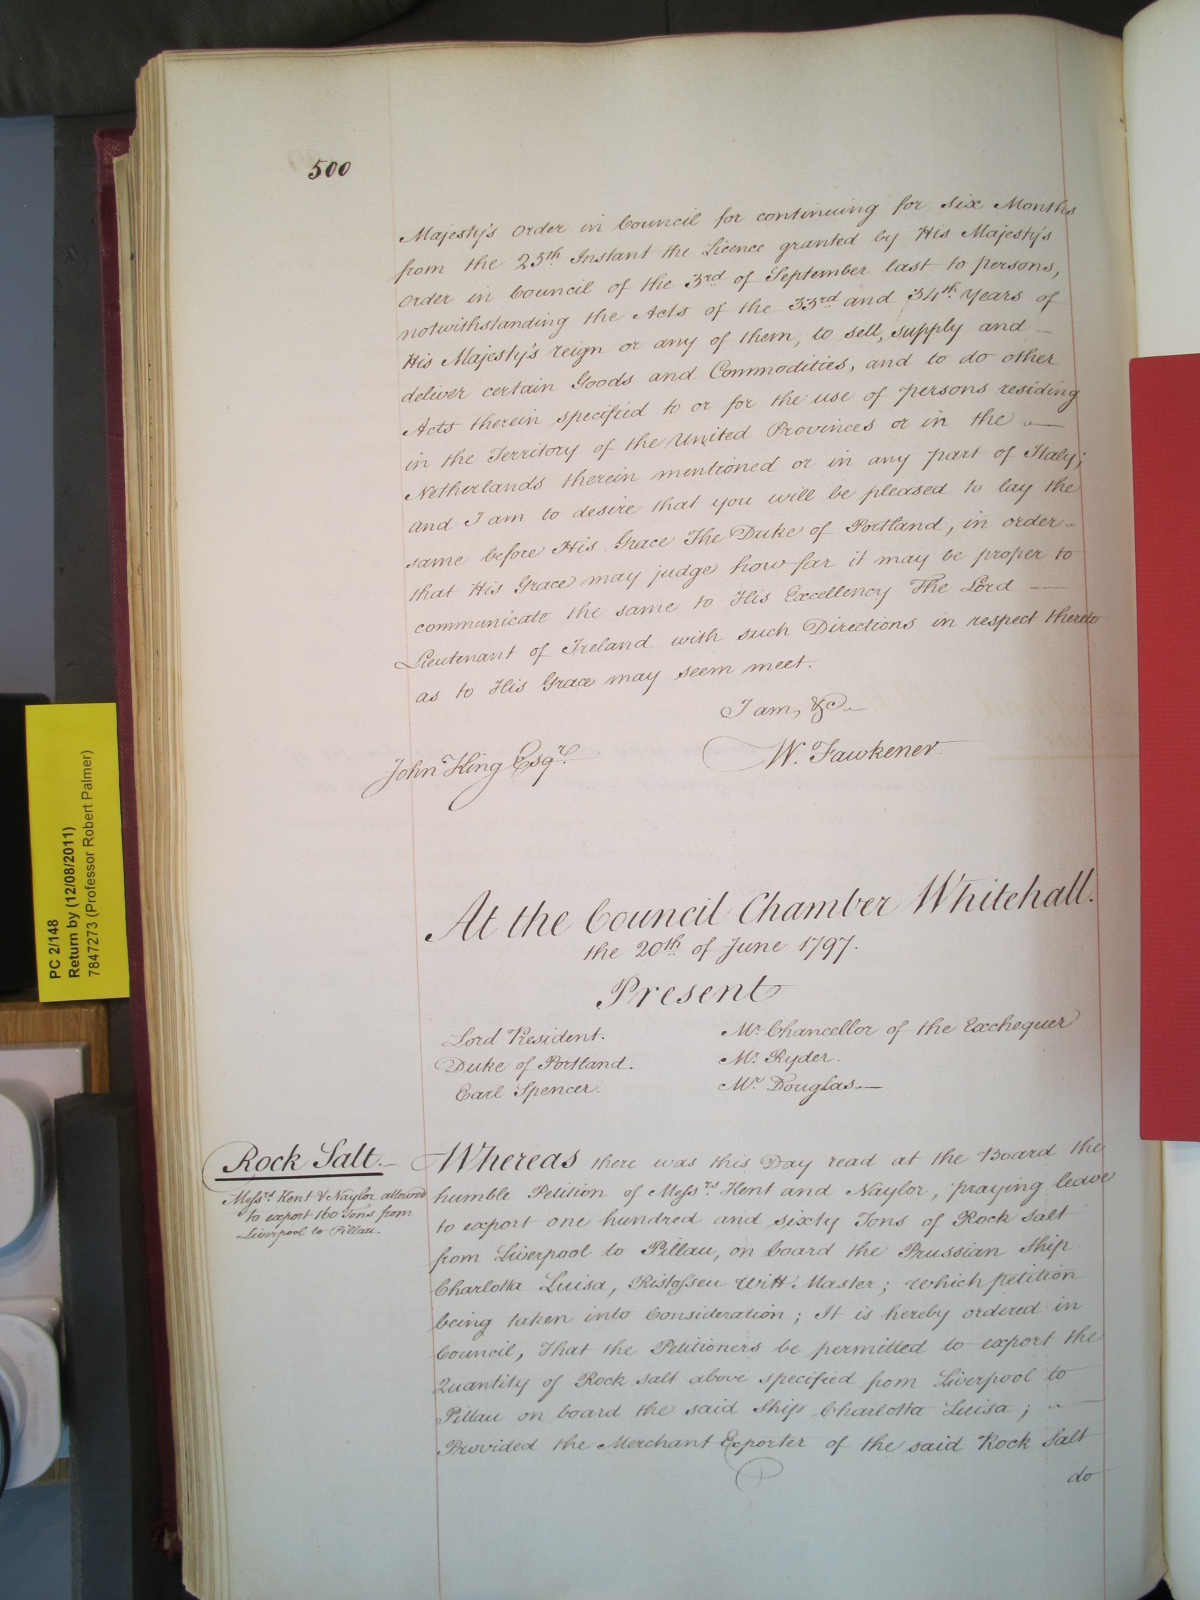 500
Majesty's Order in Council for continuing for six Months
from the 25th Instant the Licence granted by His Majesty's
Order in Council of the 3rd of September last to persons,
notwithstanding the Acts of the 33rd and 34th Years of
His Majesty's reign or any of them, to sell, supply and
deliver certain Goods and Commodities, and to do other
Acts therein specified to or for the use of persons residing
in the Territory of the United Provinces or in the
Netherlands therein mentioned or in any part of Italy;
and I am to desire that you will be pleased to lay the
same before His Grace The Duke of Portland, in order
that His Grace may judge how far it may be proper to
communicate the same to His Excellency The Lord
Lieutenant of Ireland with such Directions in respect thereto
as to His Grace may seem meet.
I am, &c
John King Esqr. W. Fawkener
At the Council Chamber Whitehall.
the 20th of June 1797.
Present
Lord President.
Duke of Portland.
Earl Spencer.
Mr. Chancellor of the Exchequer
Mr. Ryder.
Mr. Douglas.
Rock Salt.
Messrs Kent & Naylor allowed
to export 160 Tons from
Liverpool to Pillau.
Whereas there was this Day read at the Board the
humble Petition of Messrs. Kent and Naylor, praying leave
to export one hundred and sixty Tons of Rock Salt
from Liverpool to Pillau, on board the Prussian Ship
Charlotta Luisa, Witt Master; which petition
being taken into Consideration; It is hereby ordered in
Council, That the Petitioners be permitted to export the
Quantity of Rock salt above specified from Liverpool to
Pillau on board the said Ship Charlotta Luisa;
Provided the Merchant Exporter of the said Rock Salt
do
PC 2/148
Return by (12/08/2011)
7847273 (Professor Robert Palmer)